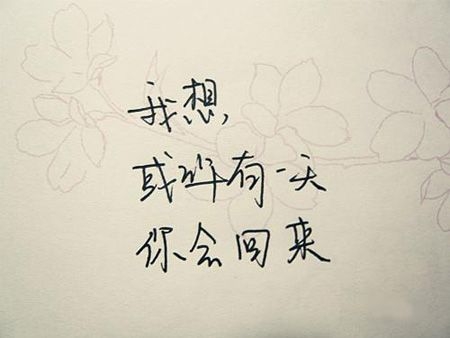 我想，
或许有一天
你会回来